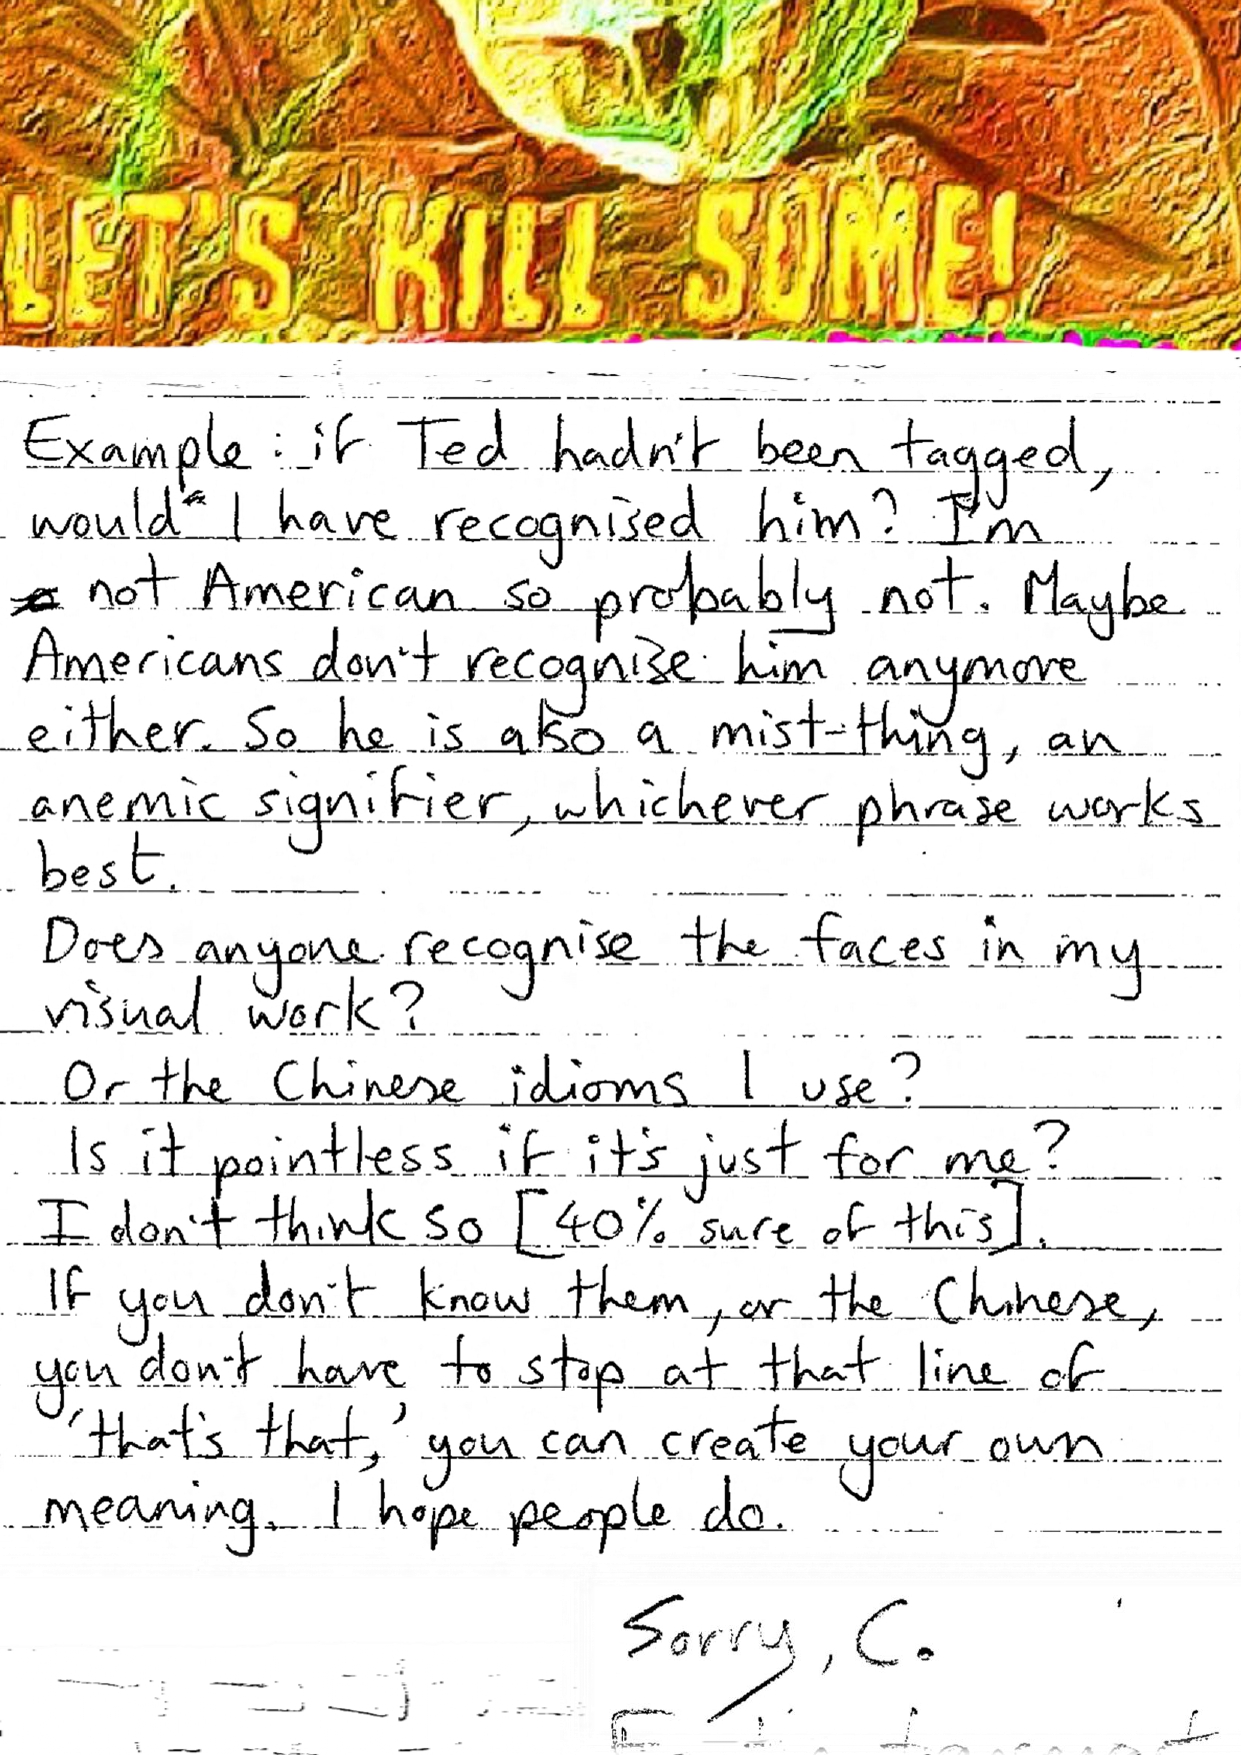 LET'S KILL SOME!
Example: if Ted hadn't been tagged,
would I have recognised him? I'm
not American so probably not. Maybe
Americans don't recognise him anymore
either. So he is also a mist-thing, an
anemic signifier, whichever phrase works
best.
Does anyone recognise the faces in my
visual work?
Or the Chinese idioms I use?
Is it pointless if it's just for me?
I don't think so [40% sure of this].
If you don't know them, or the Chinese,
you don't have to stop at that line of
'that's that,' you can create your own
meaning. I hope people do.
Sorry, C.